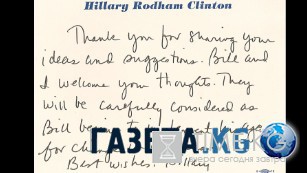 Hillary Rodham Clinton
Thank you for sharing your
ideas and suggestions. Bill and
I welcome your thoughts. They
will be carefully considered as
Bill
ГАЗЕТА.KG
for
сегодня
Best wishes. Hillary